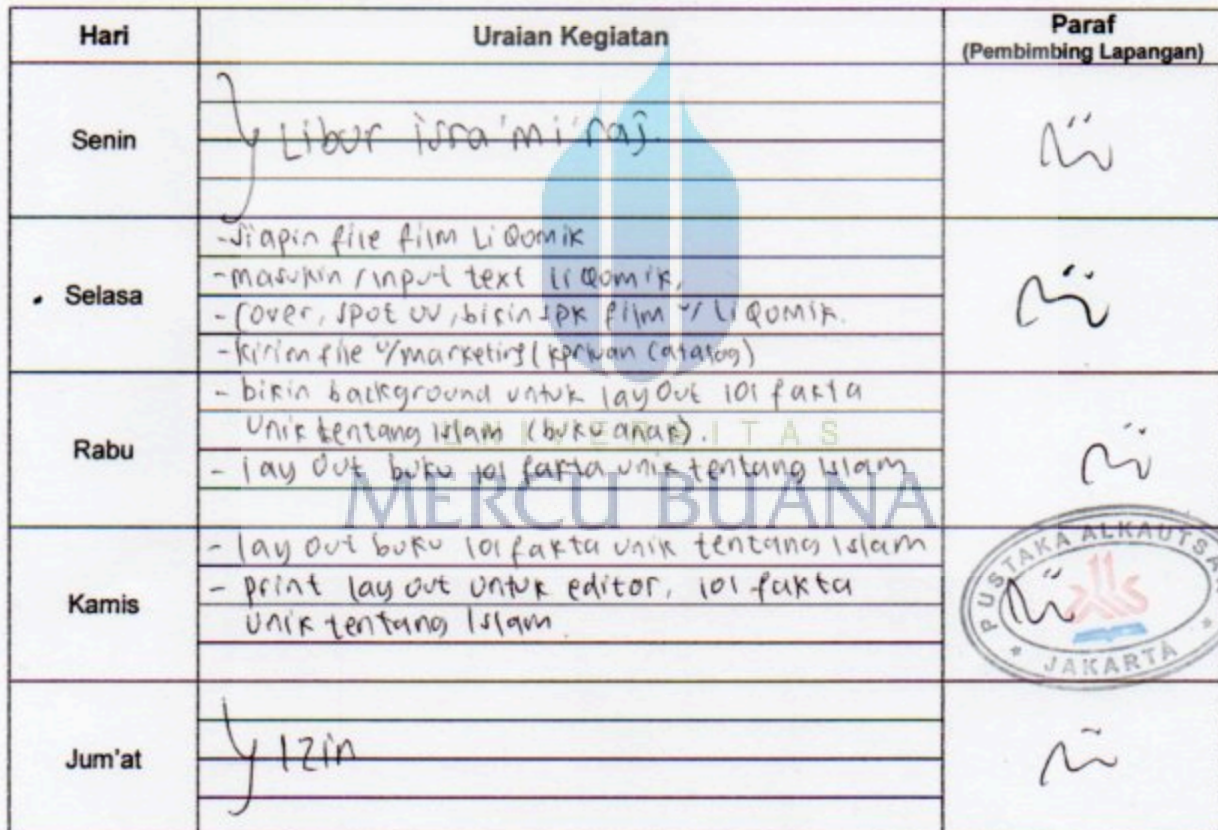 Hari
Uraian Kegiatan
Paraf
(Pembimbing Lapangan)
Senin
Libur isra'mi'raj.
Selasa
- siapin file film Li Qomik
- masukin / input text Li Qomik,
- cover, spot uv, bikin spk film u/ Li Qomik.
- kirim file u/ marketing (kprluan Catalog)
Rabu
- bikin background untuk lay Out 101 fakta
Unik tentang Islam (buku anak).
- lay Out buku 101 fakta unik tentang Islam
Kamis
- lay out buku 101 fakta unik tentang Islam
- print lay out untuk editor, 101 fakta
Unik tentang Islam.
Jum'at
Izin
UNIVERSITAS
MERCU BUANA
PUSTAKA ALKAUTSAR
JAKARTA